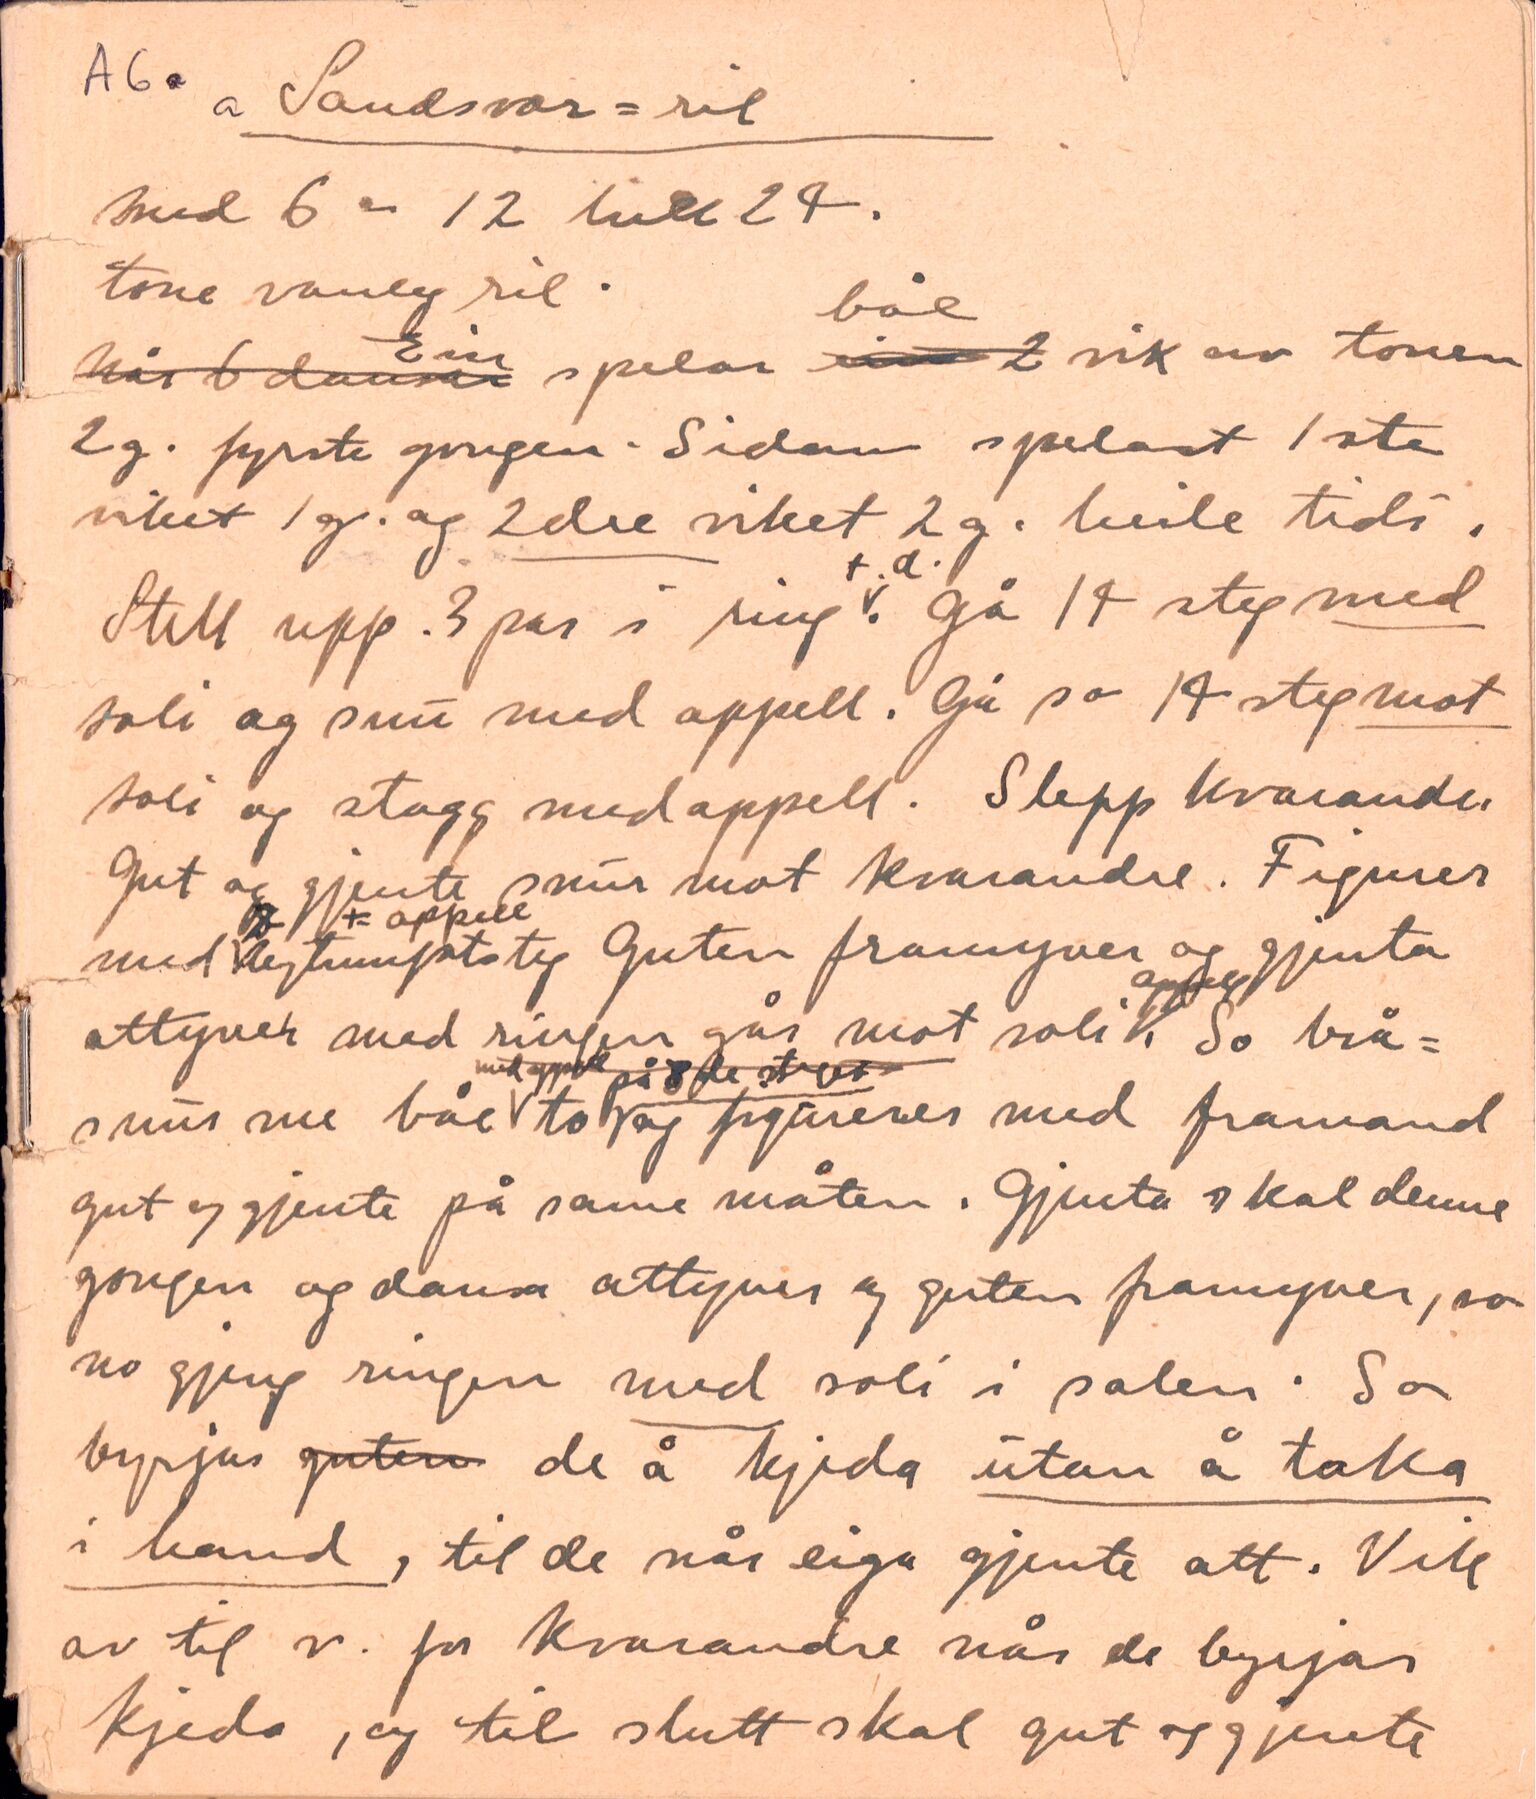 A 6.
a Sandsvær = ril
med 6 – 12 heilt 24.
tone vanleg ril.
båe
når 6 dansar Ein spelar 2 vik av tonen
2 g. fyrste gongen. Sidan spelast 1 ste
viket 1 g. og 2dre viket 2 g. heile tidi.
t. d.
Still upp. 3 par i ring. Gå 14 steg med
soli og snu med appell. Gå so 14 steg mot
soli og stogg med appell. Slepp kvarandre
Gut og gjente snur mot kvarandre. Figurer
+ appell
med steg Guten framyver og gjenta
appell
attyver med ringen går mot soli. So brå=
med appell på 8 de steget
snur me båe to og figurerer med framand
gut og gjente på same måten. Gjenta skal denne
gongen og dansa attyver og guten framyver, so
no gjeng ringen med soli i salen. So
byrjar guten de å kjeda utan å taka
i hand, til de når eiga gjente att. Vik
av til v. for kvarandre når de byrjar
kjeda, og til slutt skal gut og gjente